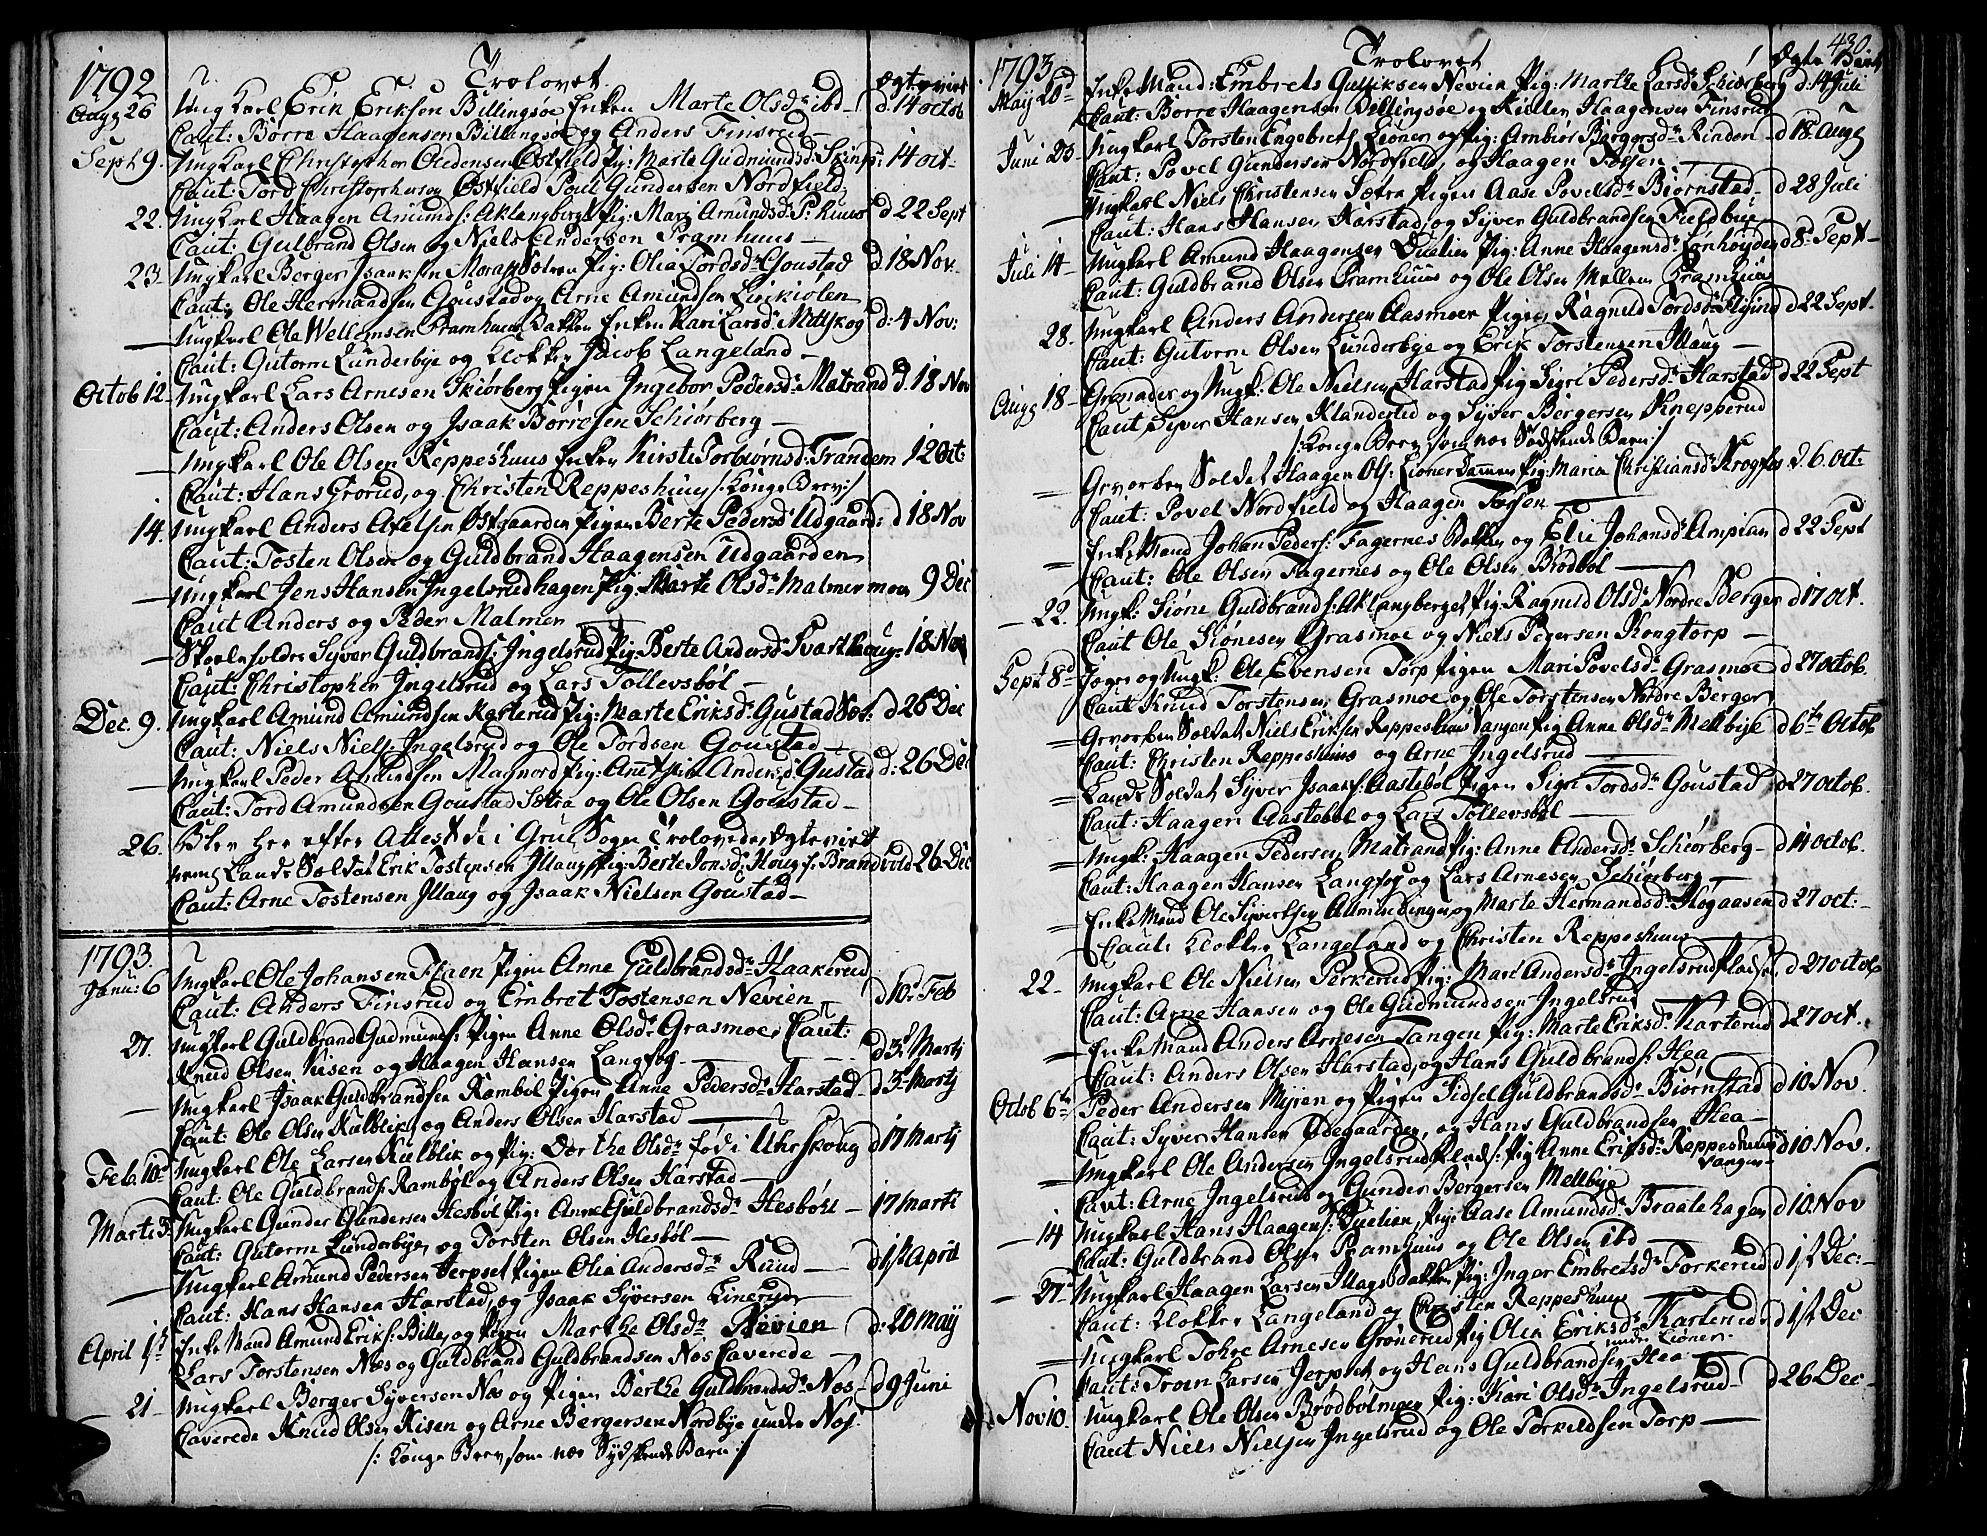 1792 Trolovet Ægtevied
Aug 26 Ungkarl Erik Eriksen Billingsøe Enken Marte Olsdr ibd - d: 14 octob
Caut: Børre Haagensen Billingsøe og Anders Finsrud -
Sept 9. Ungkarl Christopher Oledensen Østfield Pig: Marte Gudmundsd: d: 14 oct-
Caut: Tord Christophersen Østfield Poul Gundersen Nordfield,
22. Ungkarl Haagen Amunds: Aklangberget Pig: Mari Amundsdr d 22 Sept
Caut: Gulbrand Olsen og Niels Andersen Pramhuus -
23. Ungkarl Berger Isaaksen Pig: Olia Tordsdr Goustad d. 18 Nov.
Caut: Ole Hermandsen Goustad og Arne Amundsen
- Ungkarl Ole Wellemsen Pramhuus Bakken Enken Kari Larsdr Mittskog d: 4 Nov:
Caut: Gutorm Lunderbye og Klokker Jacob Langeland -
Octob 12. Ungkarl Lars Arnesen Skiørberg Pigen Ingebor Pedersdr Matrand d. 18 Nov
Caut: Anders Olsen og Isaak Børresen Schiørberg -
- Ungkarl Ole Olsen Reppeshuus Enken Kirsti Torbiørnsd: Trandem 12 Oct:
Caut: Hans Grorud, og Christen Reppeshuus /: Konge Brev:/
14. Ungkarl Anders Axelsen Østgaarden Pigen Berte Pedersdr Udgaard: d 18 Nov
Caut: Tosten Olsen og Guldbrand Haagensen Udgaarden
- Ungkarl Jens Hansen Ingelsrudhagen Pig: Marte Olsdr Malmermoen 9 Dec
Caut Anders og Peder Malmer
- Skoeleholder Syver Guldbrands: Ingelsrud Pig: Berte Andersdr Svarthoug- 18 Nov
Caut: Christopher Ingelsrud og Lars Tollevsbøl -
Dec. 9. Ungkarl Amund Amundsen Karterud Pig: Marte Eriksdr Gustad Sæt: d 26 Dec
Caut: Niels Nielse Ingelsrud og Ole Tordsen Goustad -
- Ungkarl Peder Amundsen Magnor Pig: Anders d: Gustad d: 26 Dec
Caut: Tord Amundsen Goustad Sætra og Ole Olsen Goustad -
26. Blev her efter Attest de i Grue Sogn Trolovede, Ægtevied
nemlig Lands Soldat Erik Tostensen Illaug Pig: Berte Jonsdr Houg i Brandvold 26 Dec
Caut: Arne Tostensen Illaug og Isaak Nielsen Goustad -
1793.
Janu: 6 Ungkarl Ole Johansen Pigen Anne Guldbrandsdr Haakerud
Caut: Anders Finsrud og Embret Tostensen Nevien d 10 Feb
27. Ungkarl Guldbrand Gudmunds: Pigen Anne Olsdr Grasmoe, Caut:
Knud Olsen Kisen og Haagen Hansen Langfog - d 3 Martj
- Ungkarl Isaak Guldbrandsen Rambøl Pigen Anne Pedersdr Harstad - d 3 Martj
Caut: Ole Olsen Kulblik og Anders Olsen Harstad -
Feb. 10d Ungkarl Ole Larsen Kulblik og Pig: Dorthe Olsdr fød i Uhrskoug d 17 Martj
Caut: Ole Guldbrands: Rambøl og Anders Olsen Harstad -
Marti 3. Ungkarl Gunder Gundersen Hesbøl Pig: Anne Guldbrandsdr Hesbøl - 17 Marti
Caut: Gutorm Lunderbye, og Torsten Olsen Hesbøl -
- Ungkarl Amund Pedersen Jerpset Pigen Olia Andersdr Ruud - d 1st April
Caut: Hans Hansen Harstad, og Isaak Syversen
April 1st Enke Mand Amund Eriks: Billey og Pigen Marthe Olsdr Nevien d: 20 May
Lars Torstensen Næs og Guldbrand Guldbrandsen Nos Caverede -
21- Ungkarl Berger Syversen Nos og Pigen Berthe Guldbrandsdr Nos - d 9 Juni
Caverede Knud Olsen Kisen og Arne Bergersen Nordbye under Nos.
/: Konge Brev som nær Sydskende Barn :/
1793 Trolovet Ægte 430.
May 20d Enke Mand: Embret Gulliksen Nevien Pig: Marthe Larsdr Schiørberg d 14 Juli
Caut: Børre Haagensen Billingsøe og Haagensen Finsrud
Juni 23- Ungkarl Torsten Engebrets: Lioner og Pig: Ambior Bergersdr Rinden - d 18 Aug
Caut: Povel Gundersen Nordfield, og Haagen Fossen -
- Ungkarl Niels Christensen Sætra Pigen Aase Povelsdr Biørnstad - d 28 Juli
Caut: Hans Hansen Harstad, og Syver Guldbrandsen Fieldbye
Juli 14- Ungkarl Amund Haagensen Pig: Anne Haagensdr Lønhøyden d 8 Sept -
Caut: Guldbrand Olsen Pramhuus og Ole Olsen Mellem Pramhuus
28. Ungkarl Anders Andersen Aasmoen Pigen Ragnild Tordsdr d 22 Sept.
Caut: Gutorm Olsen Lunderbye og Erik Torstensen Illaug -
Aug 18- Grenader og Ungk: Ole Nielsen Harstad Pig Sigri Pedersdr Harstad d 22 Sept
Caut, Syver Hansen Klanderud og Syver Bergersen Knepperud
/: Konge Brev som nær Sødskende Barn :/
= Gevorben Soldat Haagen Ols: Lioner Dammen Pig: Maria Christiansdr Krogfos d. 6. oct:
Caut: Povel Nordfield og Haagen Fossen -
= Enke Mand Johan Peders: Fagernes Bakken og Eli Johansdr d 22 Sept
Caut: Ole Olsen Fagernes og Ole Olsen Brødbøl -
- 22. Ungk: Siøne Guldbrands: Aklangberget Pig: Ragnild Olsdr Nordre Berger d 17 oct.
Caut Ole Siønesen Grasmoe og Niels Pedersen Kongtorp -
Sept 8d Jæger og Ungk: Ole Evensen Torp Pigen Mari Povelsdr Grasmoe d 27 octob.
Caut Knud Torstensen Grasmoe og Ole Torstensen Nordre Berger
= Gevorben Soldat Niels Eriksen Reppeshuus Vangen Pig Anne Olsdr Mellbye d 6te Octob
Caut: Christen Reppeshuus og Arne Ingelsrud -
= Lands Soldat Syver Isaaks: Aastebøl Pigen Sigri Tordsdr Goustad d 27 octob.
Caut: Haagen Aastebøl og Lars Tollevsbøl -
= Ungk: Haagen Pedersen Matrand Pig: Anne Andersdr Schiørberg - d 14 octob.
Caut: Haagen Hansen Langfog og Lars Arnesen Schiørberg -
= Enke Mand Ole Syvertsen og Marte Hermandsdr Høgaasen d 27 oct: -
Caut: Klokker Langeland og Christen Reppeshuus
22- Ungkarl Ole Nielsen Perkerud Pig: Mari Andersdr Ingelsrud Pladsen d 27 octob
Caut: Arne Hansen og Ole Gudmundsen Ingelsrud
= Enke Mand Anders Arnesen Tangen Pig: Marte Eriksdr Karterud d 27 oct.
Caut: Anders Olsen Harstad, og Hans Guldbrands: Hea -
Octob 6te Peder Andersen Myren og Pigen Sidsel Guldbrandsdr Biørnstad d 10 Nov.
Caut: Syver Hansen Ødegaarden, og Hans Guldbrandsen Hea -
= Ungkarl Ole Andersen Ingelsrud Plads: Pig Anne Eriksdr Reppeshuus d 10 Nov.
Vangen -
Caut: Arne Ingelsrud og Gunder Bergersen Mellbye
- 14 Ungkarl Hans Haagens: Pige Aase Amundsdr Braatehagen d 10 Nov
Caut: Guldbrand Olsen Pramhuus og Ole Olsen ibd -
- 27 Ungkarl Haagen Larsen Illags Bakken Pig: Inger Embretsdr Torkerud d 1st Dec: -
Caut: Klokker Langeland og Christen Reppeshuus
= Ungkarl Tohre Arnesen Grønerud Pig Olia Eriksdr Karterud d 1st Dec
under Lioner.
Caut: Troen Larsen Jerpset og Hans Guldbrandsen Hea -
Nov 10. Ungkarl Ole Olsen Brødbølmoen Pig: Kari Olsdr Ingelsrud - d 26 Dec -
Caut Niels Nielsen Ingelsrud og Ole Torkildsen Torp -